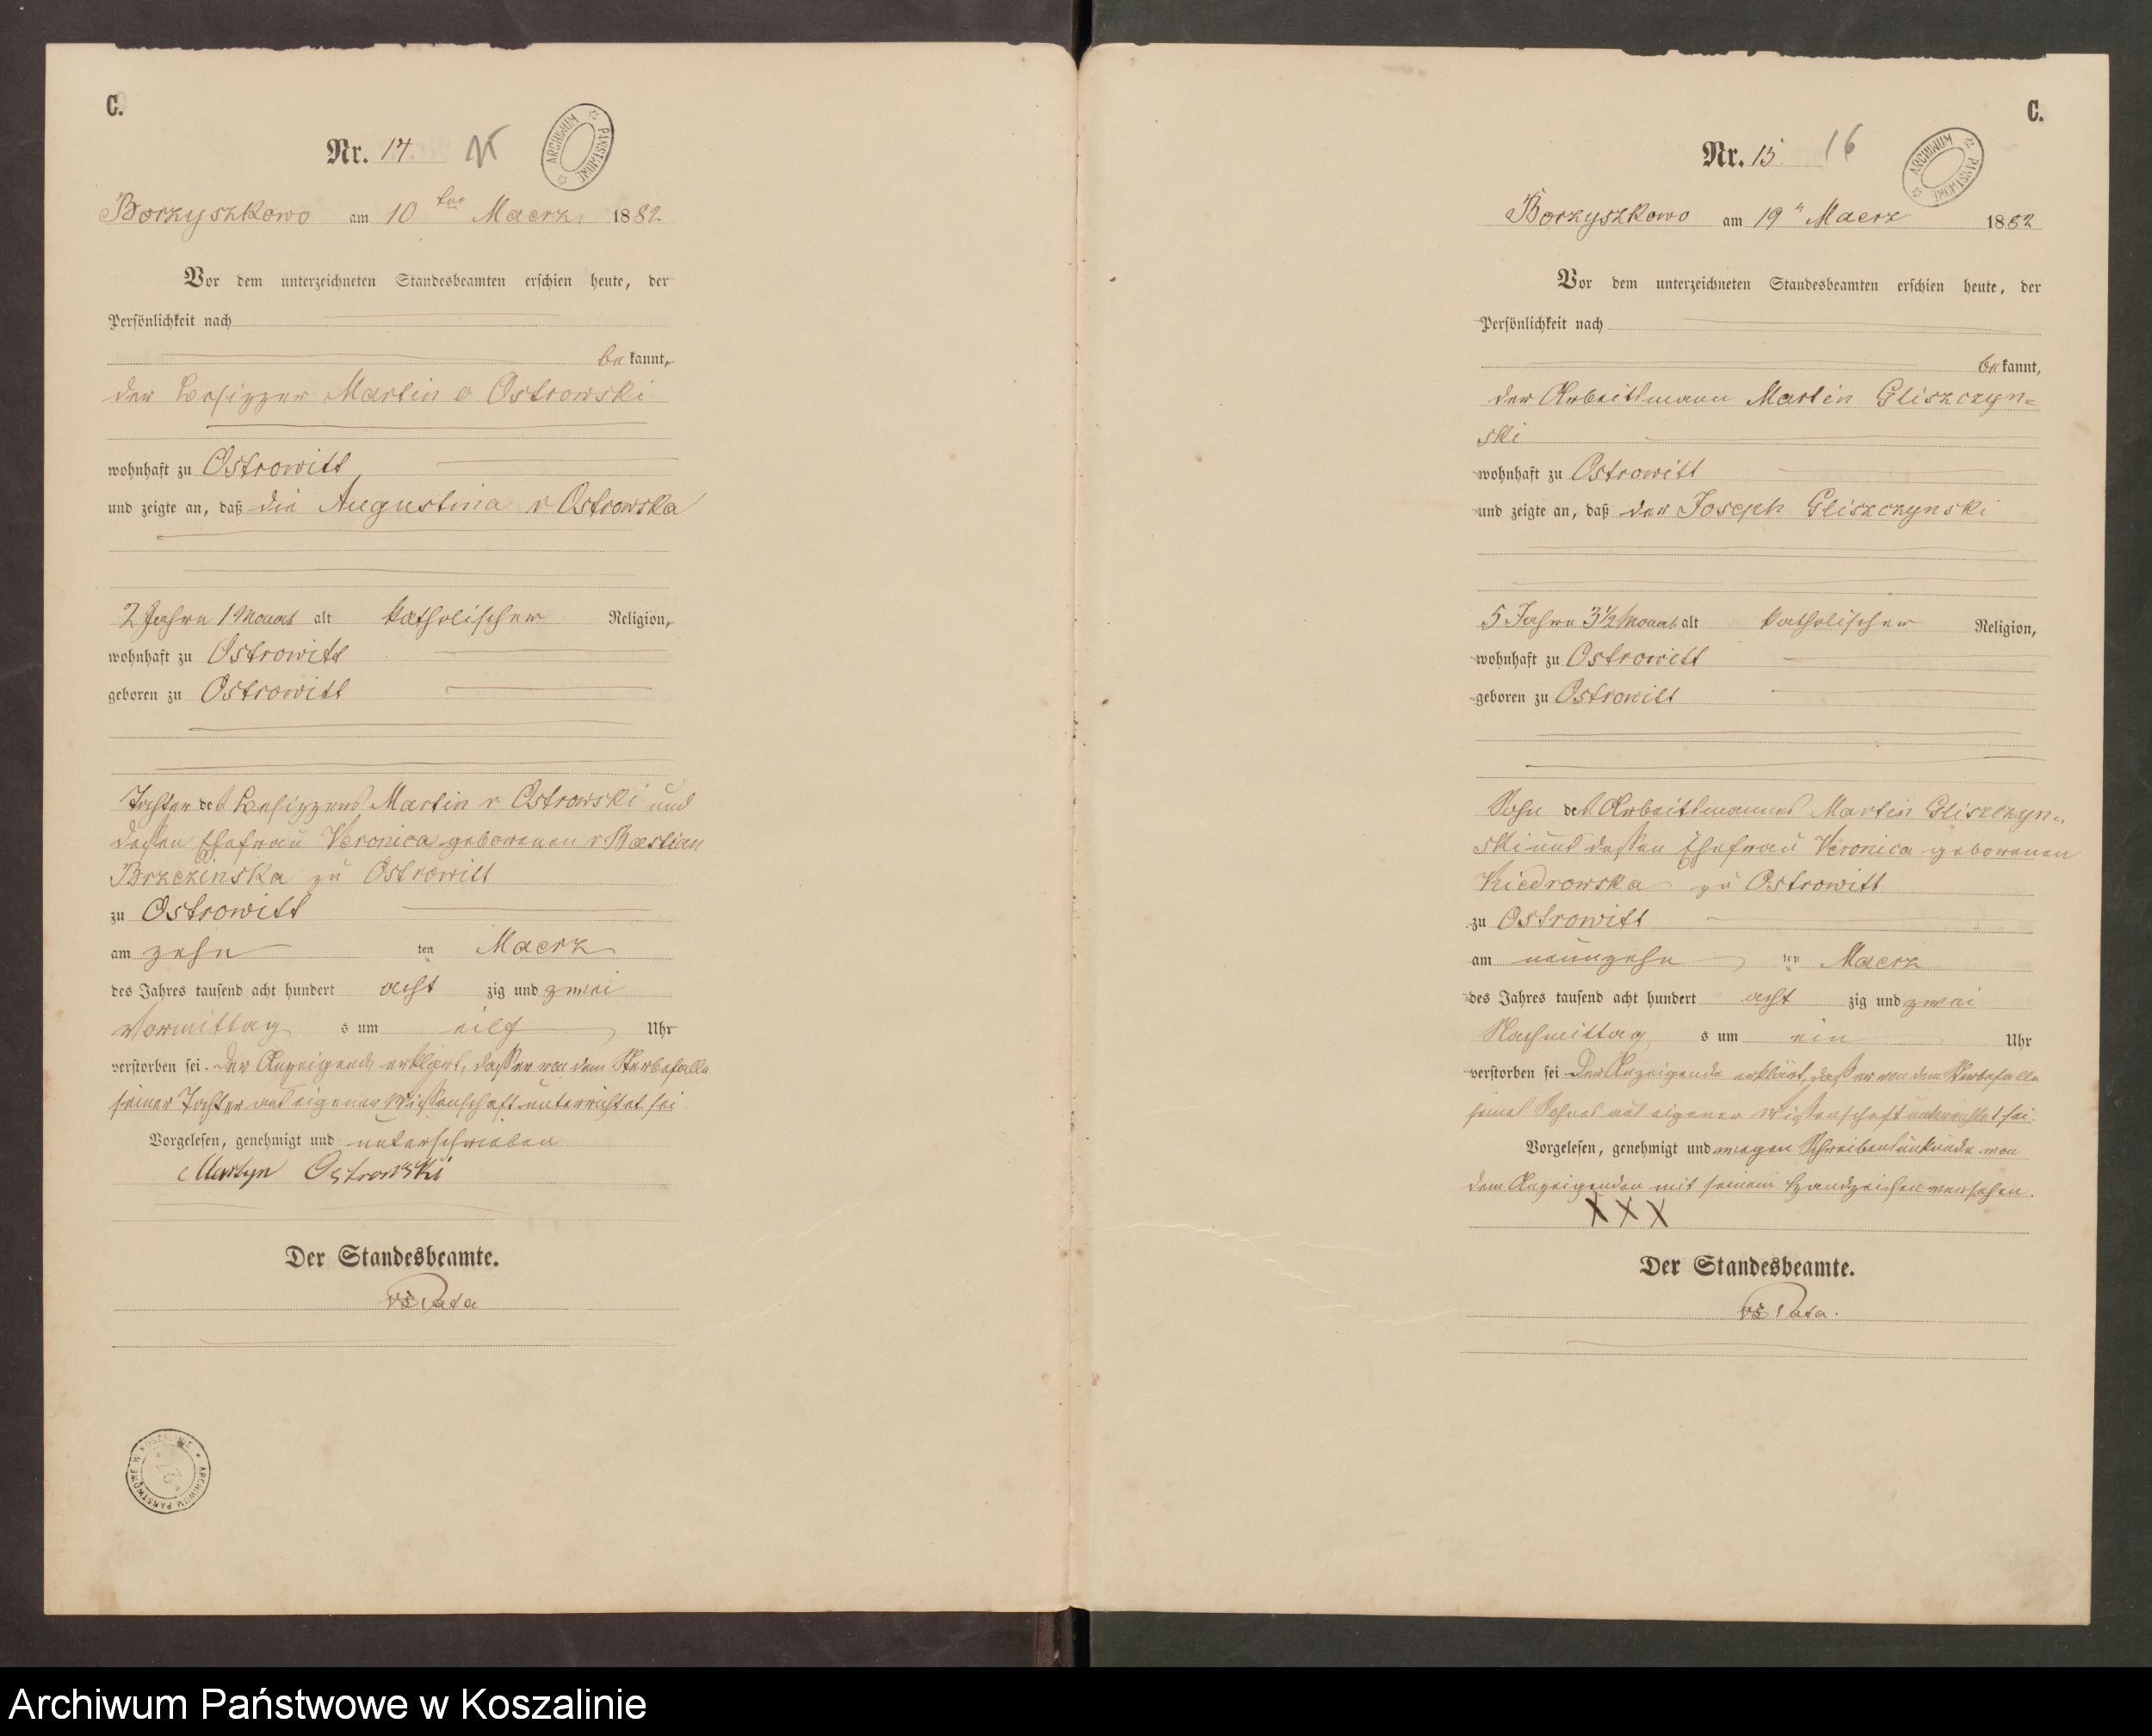 C.
Nr. 14 15
ARCHIWUM PAŃSTWOWE
Borzyszkowo am 10 ten Maerz 1882
Vor dem unterzeichneten Standesbeamten erschien heute, der
Persönlichkeit nach
be kannt,
der Besitzer Martin v Ostrowski
wohnhaft zu Ostrowitt
und zeigte an, daß die Augustina v Ostrowska
2 Jahre 1 Monat alt katholischer Religion,
wohnhaft zu Ostrowitt
geboren zu Ostrowitt
Tochter des Besitzers Martin v Ostrowski und
dessen Ehefrau Veronica geborenen v
Brzezinska zu Ostrowitt
zu Ostrowitt
am zehn ten Maerz
des Jahres tausend acht hundert acht zig und zwei
Vormittag s um eilf Uhr
verstorben sei. Der Anzeigende erklärt, dasser von dem Sterbefalle
seiner Tochter aus eigener Wissenschaft unterrichtet sei
Vorgelesen, genehmigt und unterschrieben
Martyn Ostrowski
Der Standesbeamte.
ARCHIWUM PAŃSTWOWE W KOSZALINIE
C.
Nr. 15 16
ARCHIWUM PAŃSTWOWE
Borzyszkowo am 19 " Maerz 1882
Vor dem unterzeichneten Standesbeamten erschien heute, der
Persönlichkeit nach
be kannt,
der Arbeitsmann Martin Gliszczyn-
ski
wohnhaft zu Ostrowitt
und zeigte an, daß der Joseph Gliszczynski
5 Jahre 3½ Monat alt katholischer Religion,
wohnhaft zu Ostrowitt
geboren zu Ostrowitt
Sohn des Arbeitsmannes Martin Gliszczyn-
ski und dessen Ehefrau Veronica geborenen
Kiedrowska zu Ostrowitt
zu Ostrowitt
am neunzehn ten Maerz
des Jahres tausend acht hundert acht zig und zwei
Nachmittag s um ein Uhr
verstorben sei Der Anzeigende erklärt, dass er von dem Sterbefalle
seines Sohnes aus eigener Wissenschaft unterrichtet sei.
Vorgelesen, genehmigt und wegen Schreibensunkunde von
dem Anzeigenden mit seinem Handzeichen versehen.
XXX
Der Standesbeamte.
Archiwum Państwowe w Koszalinie